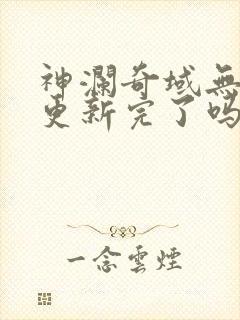 神瀾奇域無
更新完了吗
一念雲煙